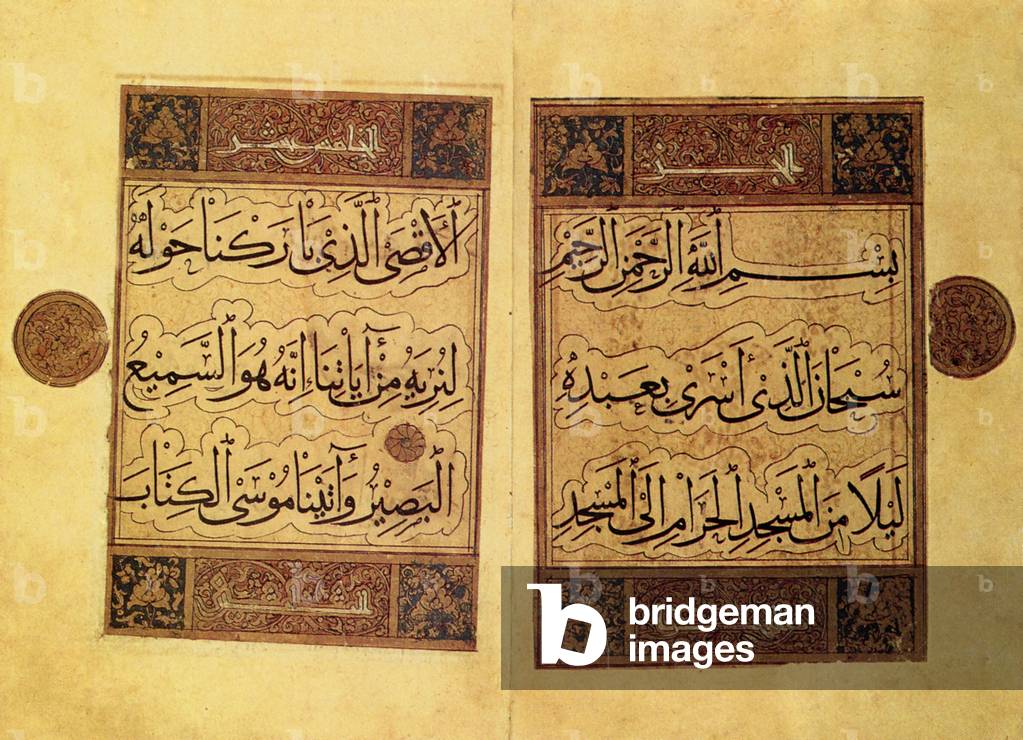 الجز
بِسْمِ اللَّهِ الرَّحْمَنِ الرَّحِيمِ
سُبْحَانَ الَّذِي أَسْرَى بِعَبْدِهِ
لَيْلًا مِنَ الْمَسْجِدِ الْحَرَامِ إِلَى الْمَسْجِدِ
الخامس عشر
الْأَقْصَى الَّذِي بَارَكْنَا حَوْلَهُ
لِنُرِيَهُ مِنْ آيَاتِنَا إِنَّهُ هُوَ السَّمِيعُ
الْبَصِيرُ وَآتَيْنَا مُوسَى الْكِتَابَ
bridgeman
images